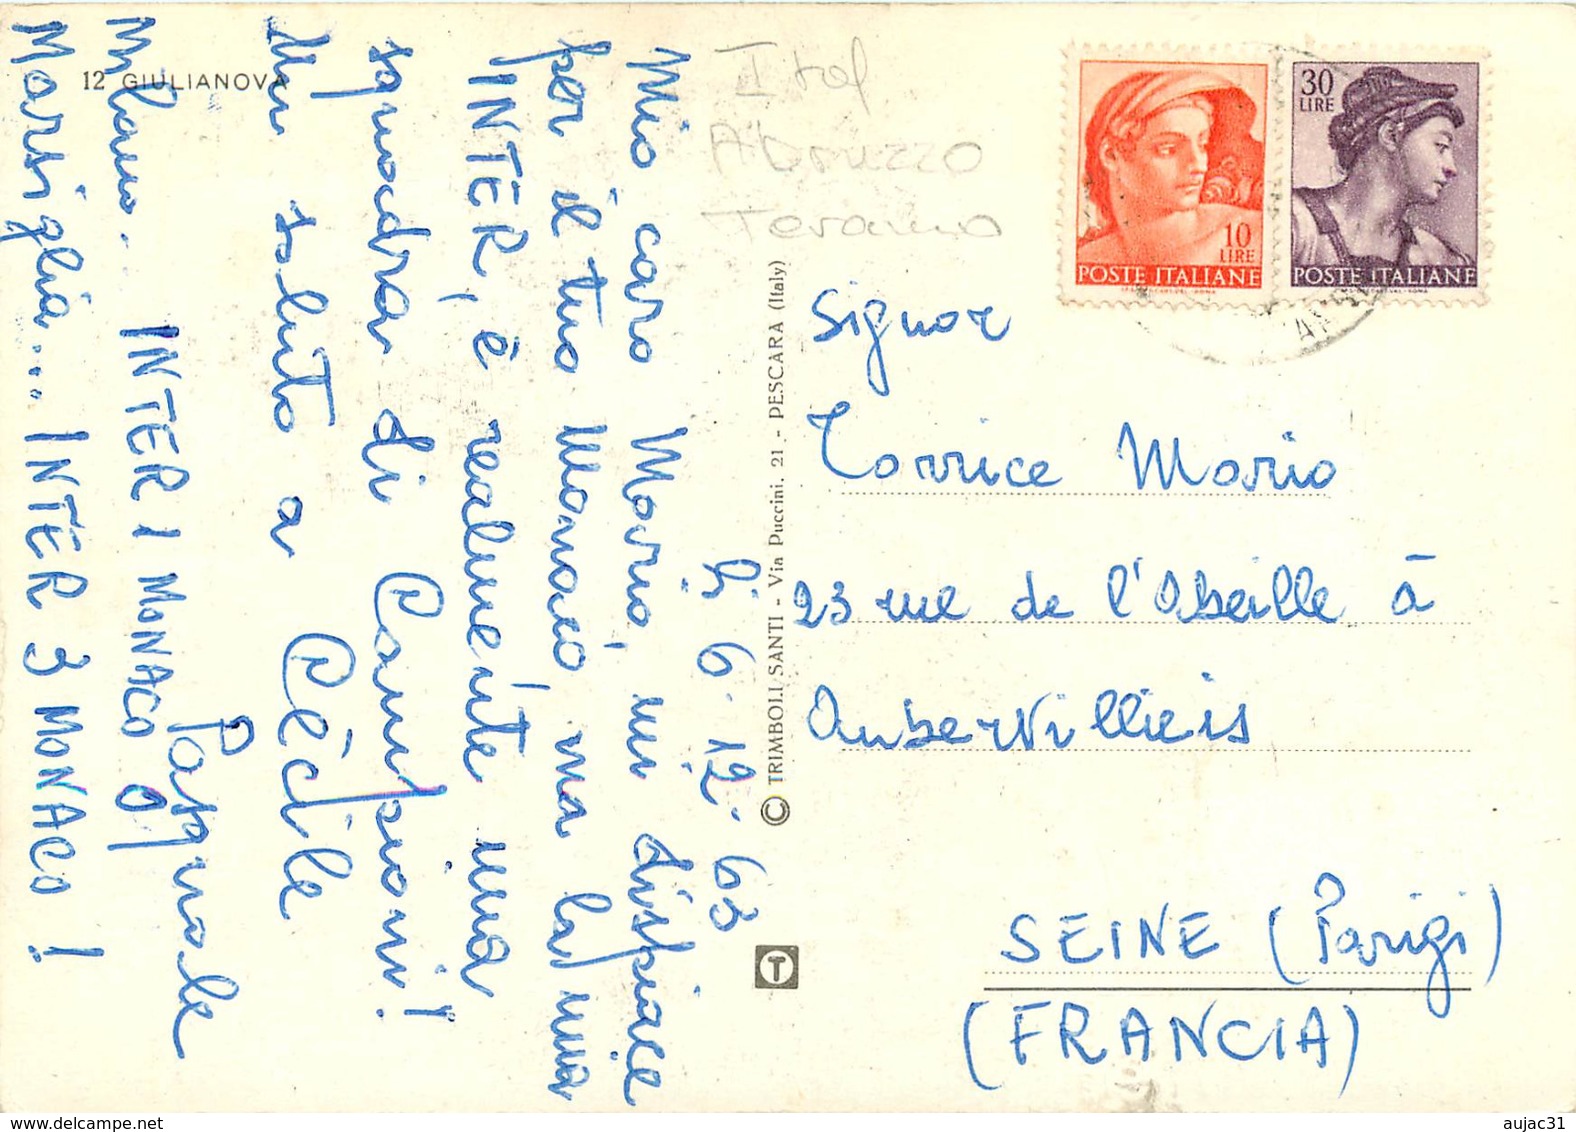 12 GIULIANOVA
Ital
Abruzzo
Teramo
lì 6-12-63
Mio caro Mario, mi dispiace
per il tuo Monaco, ma la mia
INTER, è realmente una
squadra di Campioni!
Un saluto a Cécile
Pasquale
Milano... INTER 1 MONACO 0
Marsiglia... INTER 3 MONACO 1
© TRIMBOLI SANTI - Via Puccini, 21 - PESCARA (Italy)
T
10
LIRE
POSTE ITALIANE
30
LIRE
POSTE ITALIANE
Signor
Torrice Mario
23 rue de l'Abeille à
Aubervilliers
SEINE (Parigi)
(FRANCIA)
www.delcampe.net
aujac31